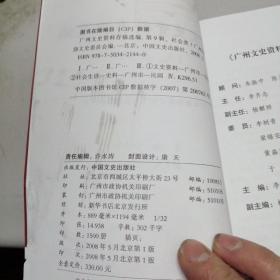 图书在版编目（CIP）数据
广州文史资料存稿选编. 第9辑, 社会类/广
协文史委员会编.—北京：中国文史出版社, 2008
ISBN 978-7-5034-2144-0
Ⅰ.广… Ⅱ.广… Ⅲ.①文史资料—广州市
②社会生活—史料—广州市—民国 Ⅳ.K296.51
中国版本图书馆CIP数据核字（2007）第
责任编辑：许水涛 封面设计：唐天
出版发行：中国文史出版社
社 址：北京市西城区太平桥大街23号
印 装：广州市政协机关印刷厂
地 址：广州市政协机关印刷厂
经 销：新华书店北京发行所
开 本：889毫米×1194毫米 1/32
印 张：14.938 字数：302千字
印 数：1500册 插页：
版 次：2008年5月北京第1版
印 次：2008年5月北京第1版
全套定价：330.00元
《广州文史资
顾 问：朱振中
主 任：李齐念
副主任：
委 员：李朝